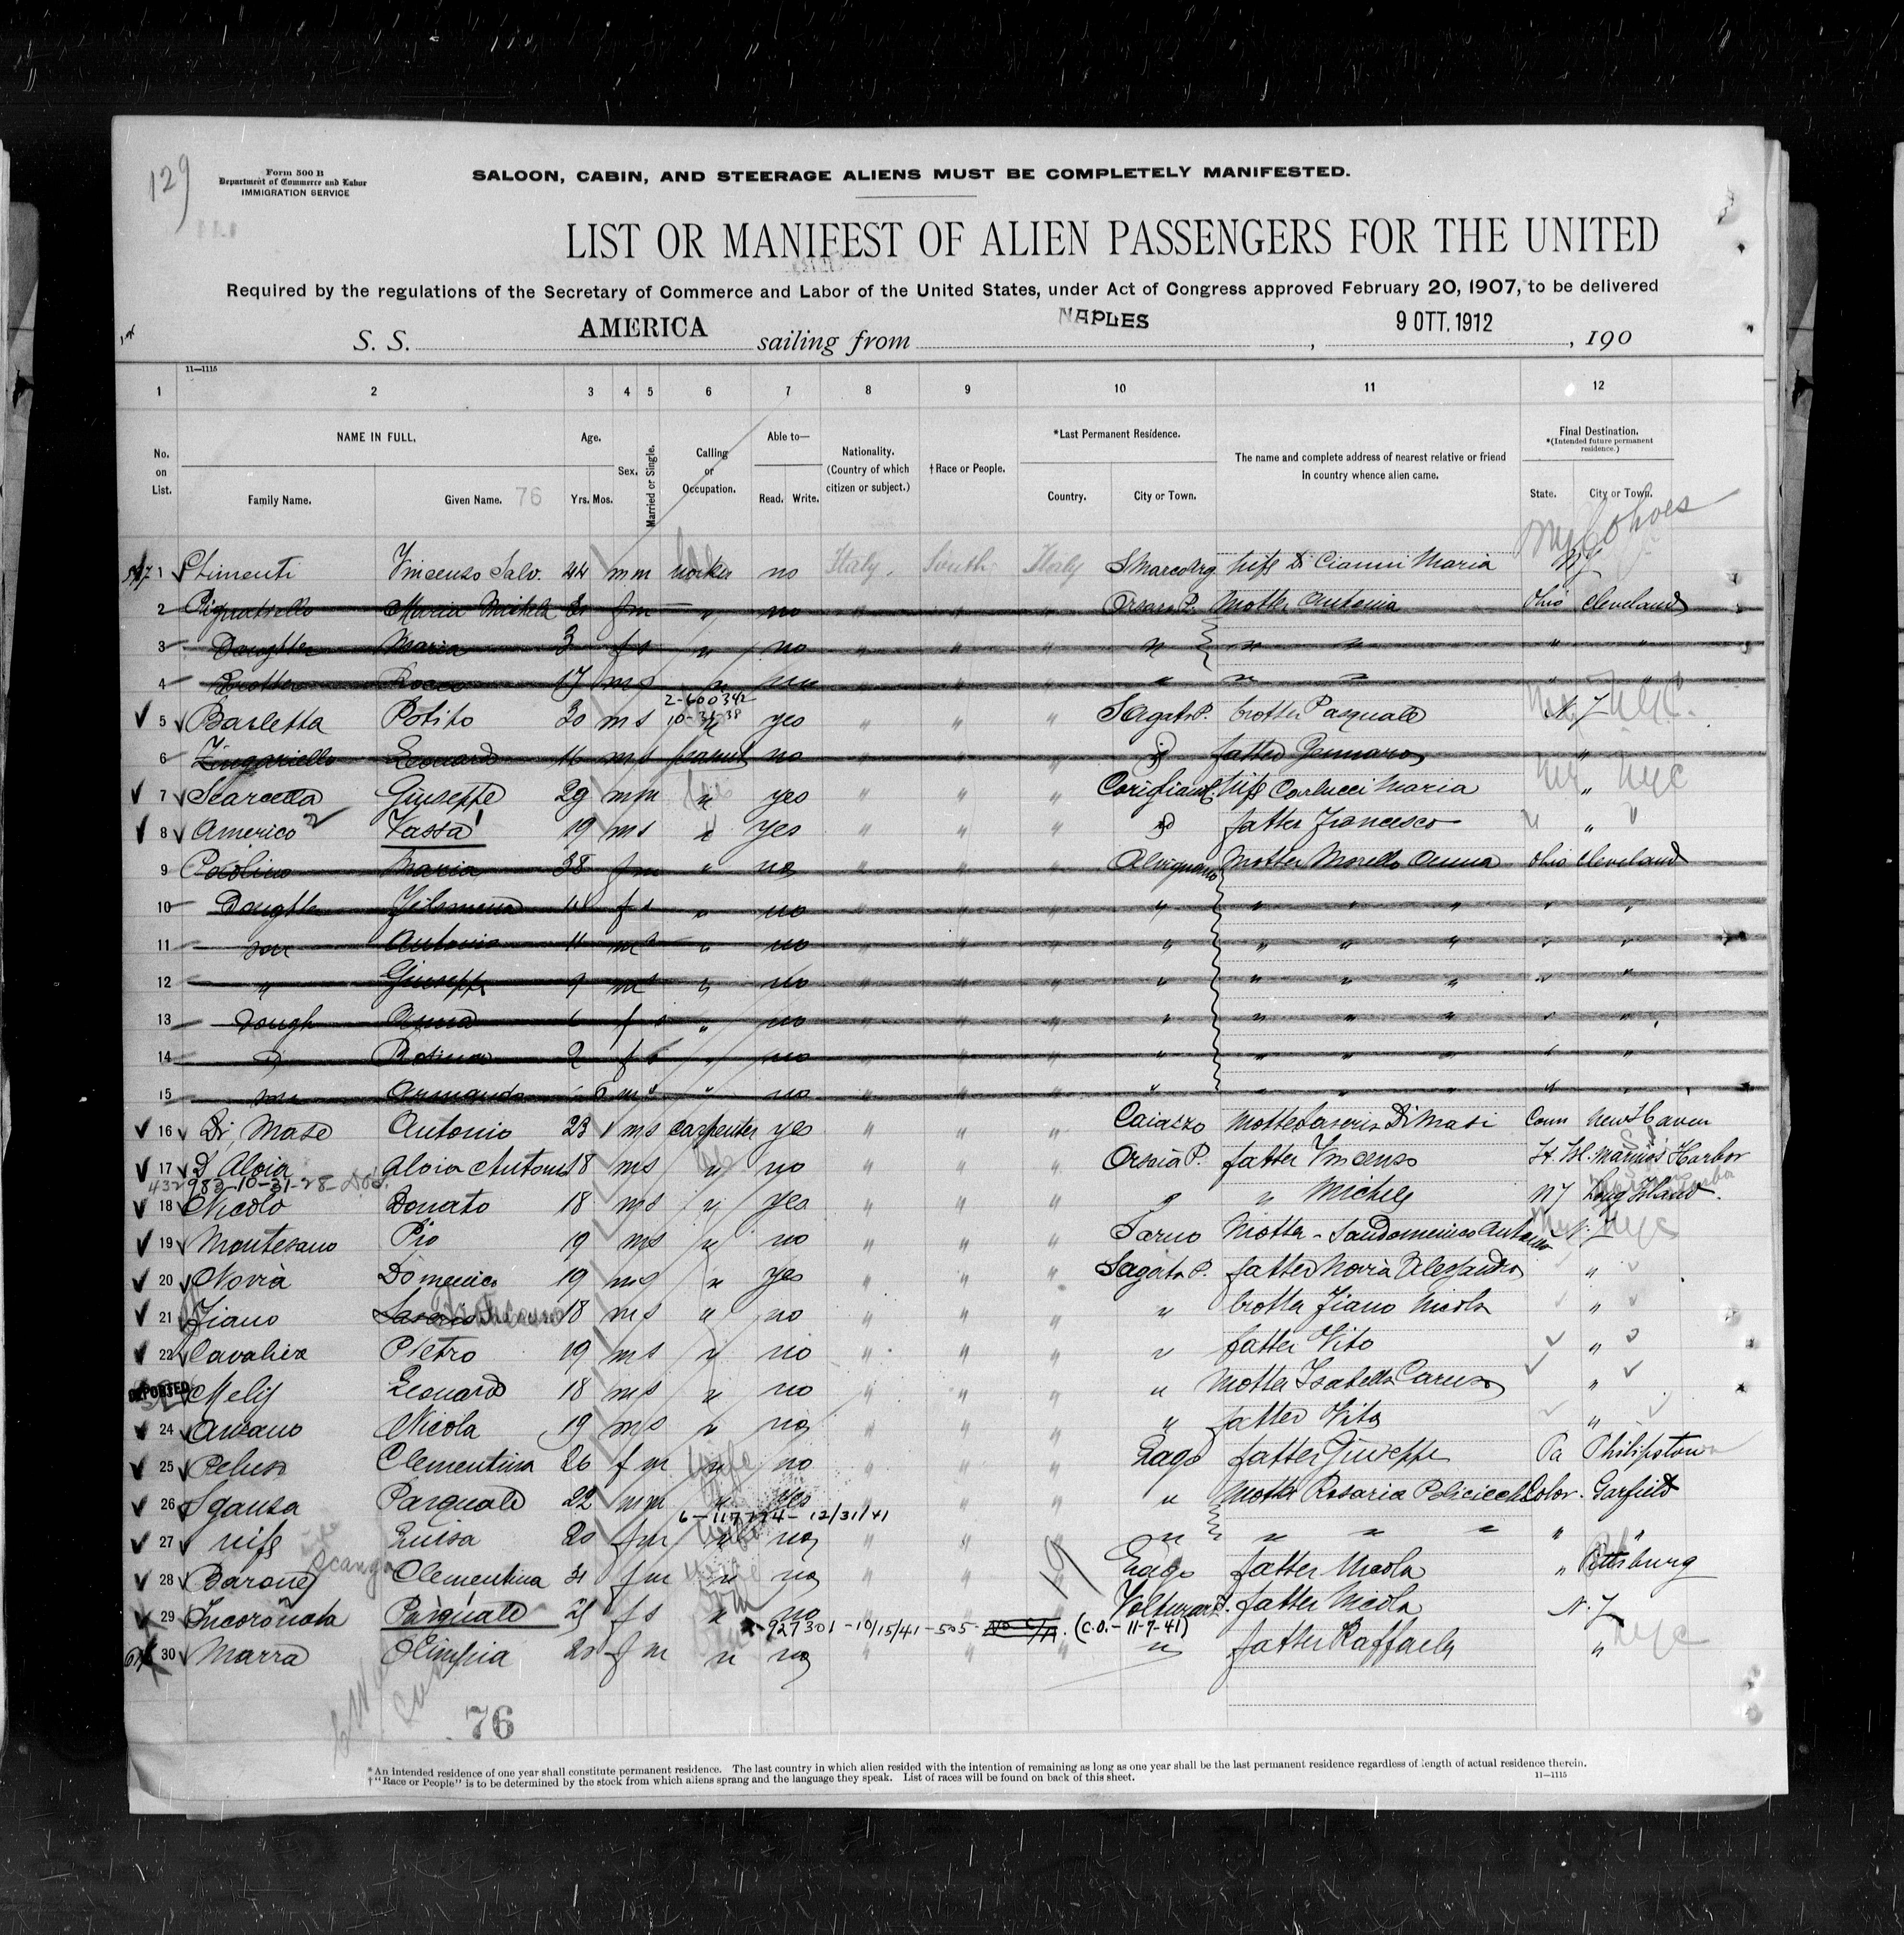 129
Form 500 B
Department of Commerce and Labor
IMMIGRATION SERVICE
SALOON, CABIN, AND STEERAGE ALIENS MUST BE COMPLETELY MANIFESTED.
LIST OR MANIFEST OF ALIEN PASSENGERS FOR THE UNITED
Required by the regulations of the Secretary of Commerce and Labor of the United States, under Act of Congress approved February 20, 1907, to be delivered
S. S. AMERICA sailing from NAPLES, 9 OTT. 1912, 190
11—1115
1 2 3 4 5 6 7 8 9 10 11 12
No. on List.
NAME IN FULL.
Family Name. Given Name. 76
Age.
Yrs. Mos.
Sex.
Married or Single.
Calling or Occupation.
Able to—
Read. Write.
Nationality.
(Country of which citizen or subject.)
†Race or People.
*Last Permanent Residence.
Country. City or Town.
The name and complete address of nearest relative or friend
in country whence alien came.
Final Destination.
*(Intended future permanent residence.)
State. City or Town.
Cohoes
1 Vincenzo Salv. 44 m m worker no Italy. South Italy S Marco Wife Di Cianni Maria NY
2 Maria Michela f m " no " " " Orsara P. Mother Antonia Ohio Cleveland
3 Daughter Maria 3 f s " no " " " " " " " "
4 Brother Rocco 17 m s " " " " " " " " "
2-600342
10-31-38
5 Barletta Potito 30 m s " yes " " " S Agata P. brother Pasquale N. J NYC.
6 Zingariello Leonardo 16 m s peasant no " " " id father Gennaro "
7 Scarcella Giuseppe 29 m m " yes " " " Corigliano C. Wife Carlucci Maria " NYC
8 Americo Vassa 19 m s " yes " " " id father Francesco "
9 Maria 38 f m " no " " " Alvignano Mother Morello Anna Ohio Cleveland
10 Daughter Filomena f s " no " " " " " " " " "
11 son Antonio 11 m s " no " " " " " " " " "
12 " Giuseppe 9 m s " no " " " " " " " " "
13 Daugh Anna 6 f s " no " " " " " " " " "
14 " 2 f s " no " " " " " " " " "
15 son Armando 6 m s " no " " " " " " " " "
16 Di Mase Antonio 23 m s carpenter yes " " " Caiazzo Mother Di Masi Conn New Haven
17 D Aloia Aloia Antonio 18 m s " no " " " Orsara P. father Vincenzo St. Isl. Mariners Harbor
432982-10-31-28
18 Nicolo Donato 18 m s " yes " " " " " Michele NY Long Island.
19 Montesano Pio 19 m s " no " " " Sarno Mother - Sandomenico N. J NYC
20 Novia Domenico 19 m s " yes " " " S Agata P. father Novia Alessandro "
21 Fiano 18 m s " no " " " " brother Fiano Nicola "
22 Cavaliere Pietro 19 m s " no " " " " father Vito "
DEPORTED Leonardo 18 m s " no " " " " Mother Isabella Caruso "
24 Nicola 19 m s " no " " " " father Vito "
25 Peluso Clementina 26 f m wife no " " " Lago father Giuseppe Pa Philipstown
26 Sganga Pasquale 22 m m " yes " " " " Mother Rosaria Color. Garfield
6-117774-12/31/41
27 wife Luisa 20 f m " no " " " " " " " " "
Scanga
28 Barone Clementina f m " no " " " Lago father Nicola " Pittsburg
29 Incoronata Pasquale f s " no " " " Volturara father Nicola N. J
927301-10/15/41-505- No C/A. (C.O.-11-7-41)
30 Marra Olimpia f m " no " " " " father Raffaele " NYC
76
*An intended residence of one year shall constitute permanent residence. The last country in which alien resided with the intention of remaining as long as one year shall be the last permanent residence regardless of length of actual residence therein.
†"Race or People" is to be determined by the stock from which aliens sprang and the language they speak. List of races will be found on back of this sheet.
11—1115